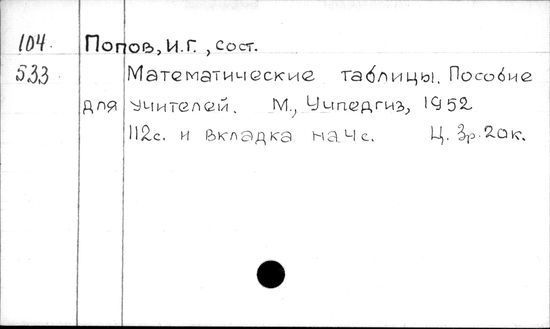 104 Попов, И.Г., сост.
533 Математические таблицы. Пособие
для учителей. М., Учпедгиз, 1952
112с. и вкладка на 4с. Ц. 3р.20к.